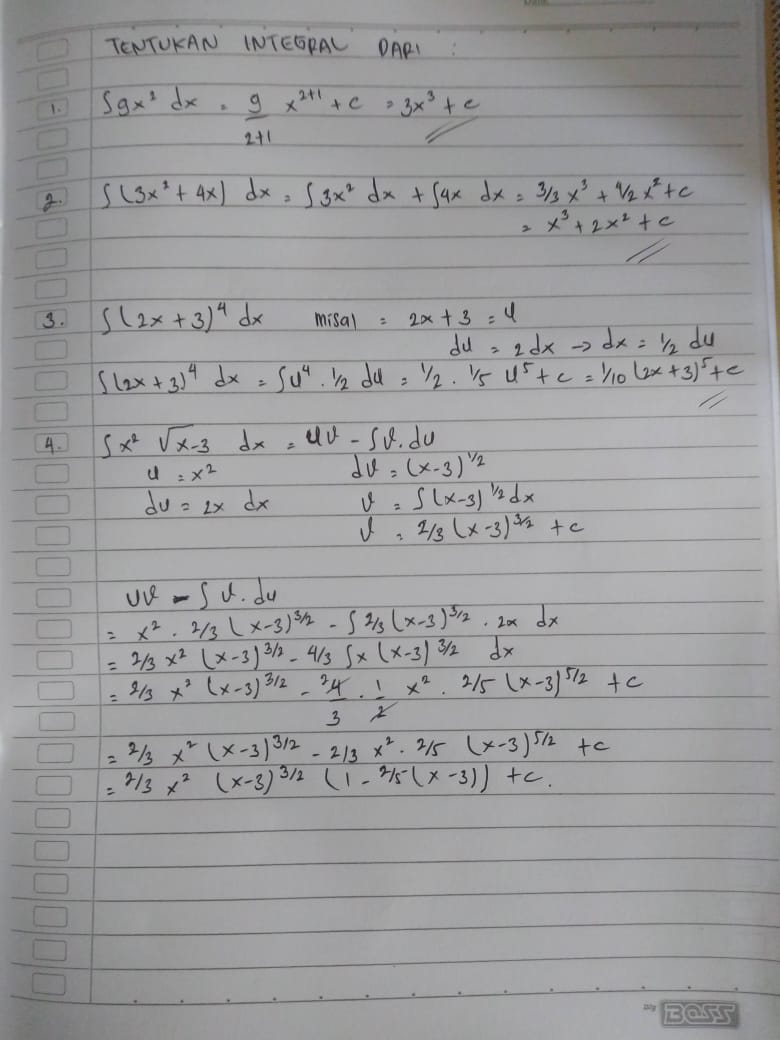 TENTUKAN INTEGRAL DARI :
1. ∫9x² dx = 9/2+1 x²⁺¹ + c = 3x³ + c
2. ∫(3x² + 4x) dx = ∫3x² dx + ∫4x dx = 3/3 x³ + 4/2 x² + c
= x³ + 2x² + c
3. ∫(2x + 3)⁴ dx misal = 2x + 3 = u
du = 2 dx → dx = 1/2 du
∫(2x + 3)⁴ dx = ∫u⁴ . 1/2 du = 1/2 . 1/5 u⁵ + c = 1/10 (2x + 3)⁵ + c
4. ∫x² √x-3 dx = uv - ∫v. du
u = x² dv = (x-3)^1/2
du = 2x dx v = ∫(x-3)^1/2 dx
v = 2/3 (x-3)^3/2 + c
uv - ∫v. du
= x² . 2/3 (x-3)^3/2 - ∫2/3 (x-3)^3/2 . 2x dx
= 2/3 x² (x-3)^3/2 - 4/3 ∫x (x-3)^3/2 dx
= 2/3 x² (x-3)^3/2 - 4/3 . 1/2 x² . 2/5 (x-3)^5/2 + c
= 2/3 x² (x-3)^3/2 - 2/3 x² . 2/5 (x-3)^5/2 + c
= 2/3 x² (x-3)^3/2 (1 - 2/5 (x-3)) + c.
BOSS